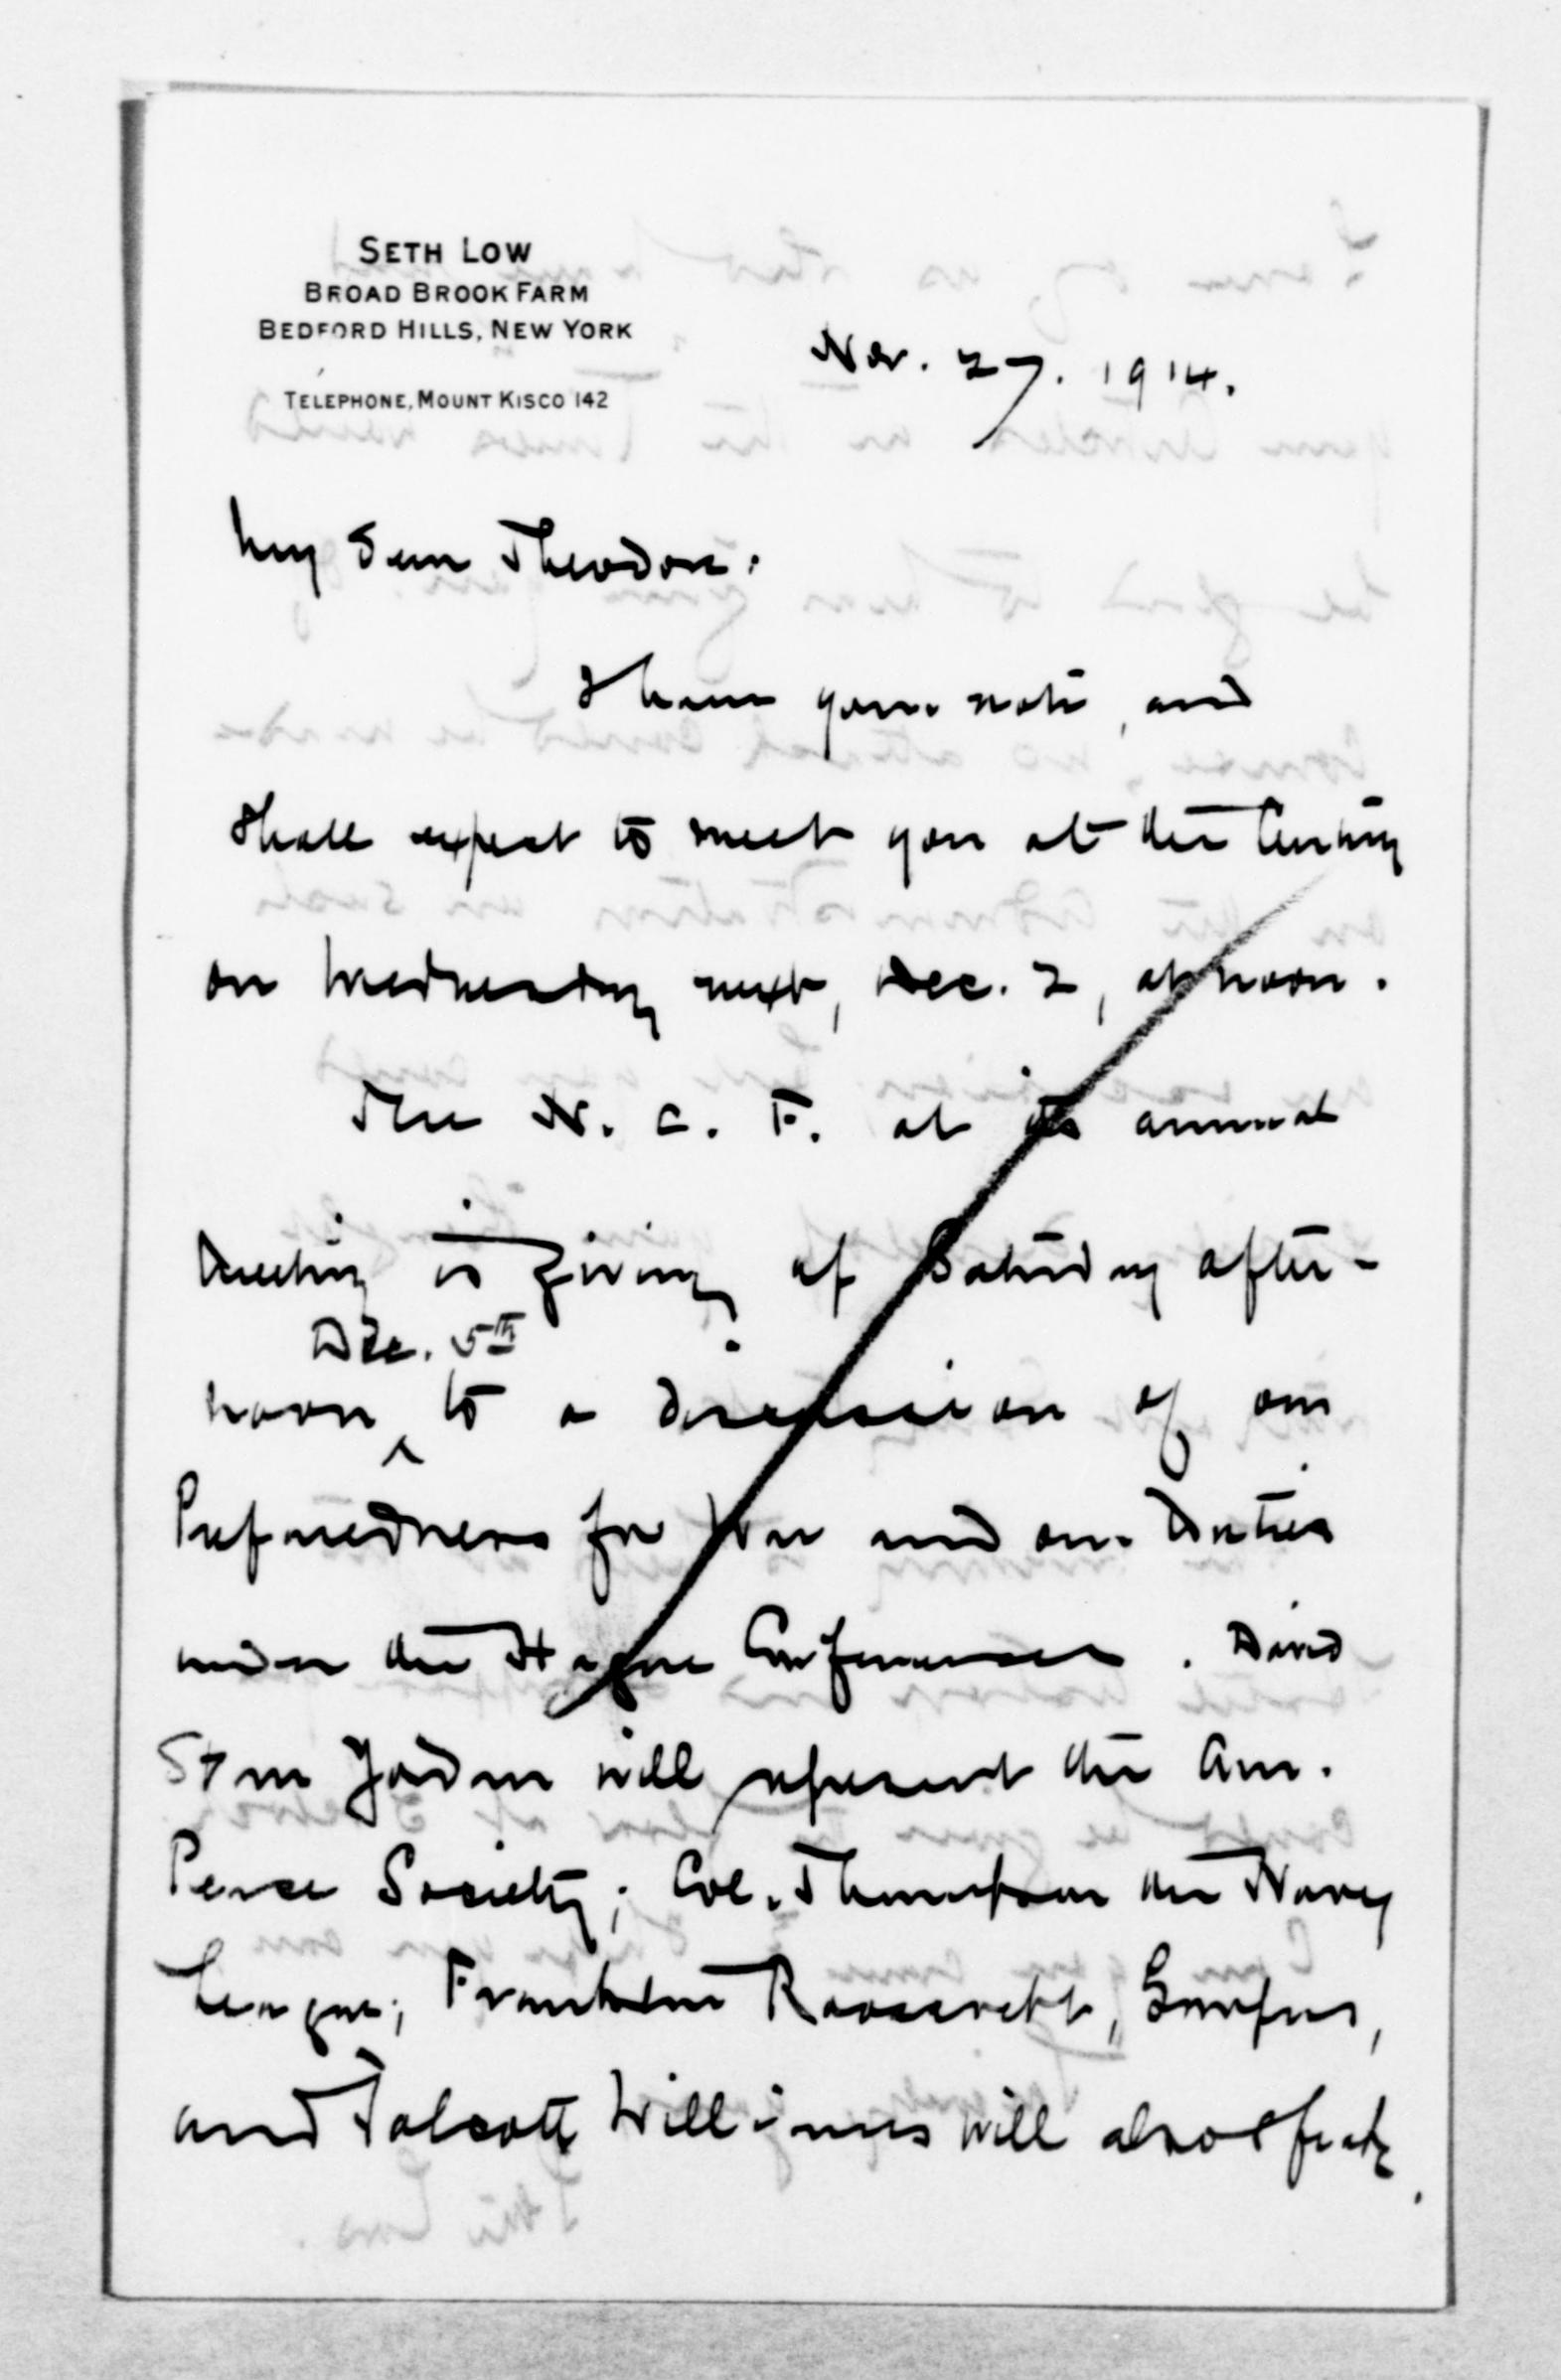 SETH LOW
BROAD BROOK FARM
BEDFORD HILLS, NEW YORK
TELEPHONE, MOUNT KISCO 142
Nov. 27. 1914.
My Dear Theodore:
I have your note, and
shall expect to meet you at the Century
on Wednesday next, Dec. 2, at noon.
The N. C. F. at its annual
Meeting is giving up Saturday after-
Dec. 5th
noon ^ to a discussion of our
Preparedness for War and our Duties
under the Hague Conferences. David
Starr Jordan will represent the Am.
Peace Society; Col. Thompson the Navy
League; Franklin Roosevelt,
and Talcott Williams will also speak.